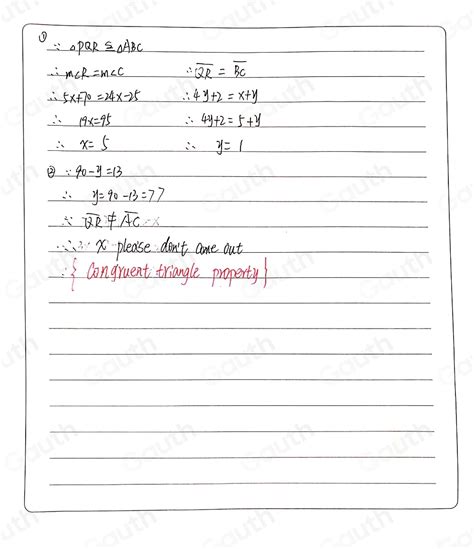 ① ∵ △PQR ≅ △ABC
∴ m∠R = m∠C ∴ QR = BC
∴ 5x+70 = 24x-25 ∴ 4y+2 = x+y
∴ 19x=95 ∴ 4y+2 = 5+y
∴ x= 5 ∴ y= 1
② ∵ 90-y=13
∴ y=90-13=77
∵ QR ≠ AC
∴ x please don't come out
∴ { Congruent triangle property}
Gauth